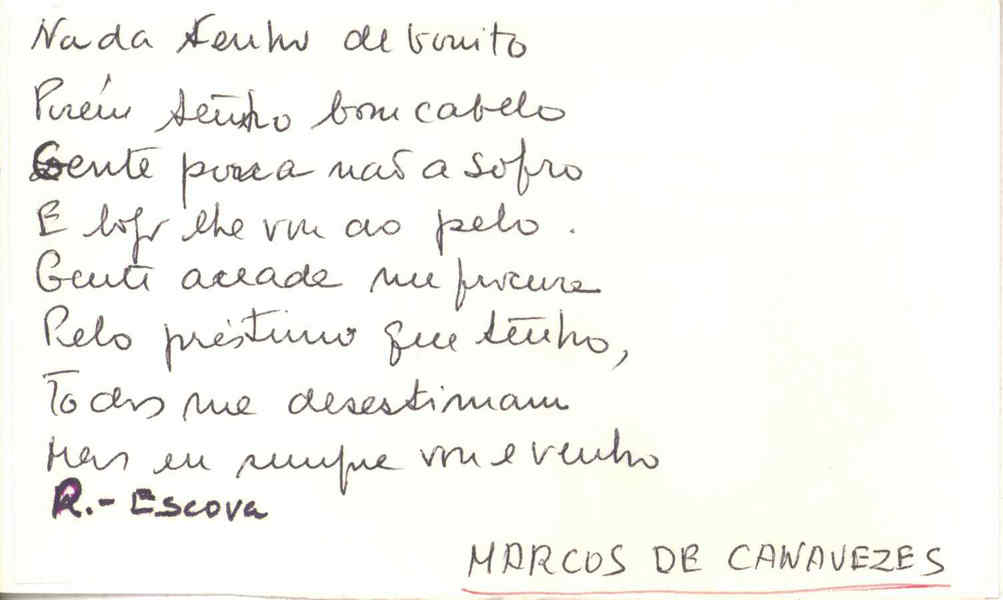 Nada tenho de bonito
Porém tenho bom cabelo
Gente porca não a sofro
E logo lhe vou ao pelo.
Gente aceada me procura
Pelo préstimo que tenho,
Todos me desestimam
Mas eu sempre vou e venho
R.- Escova
MARCOS DE CANAVEZES